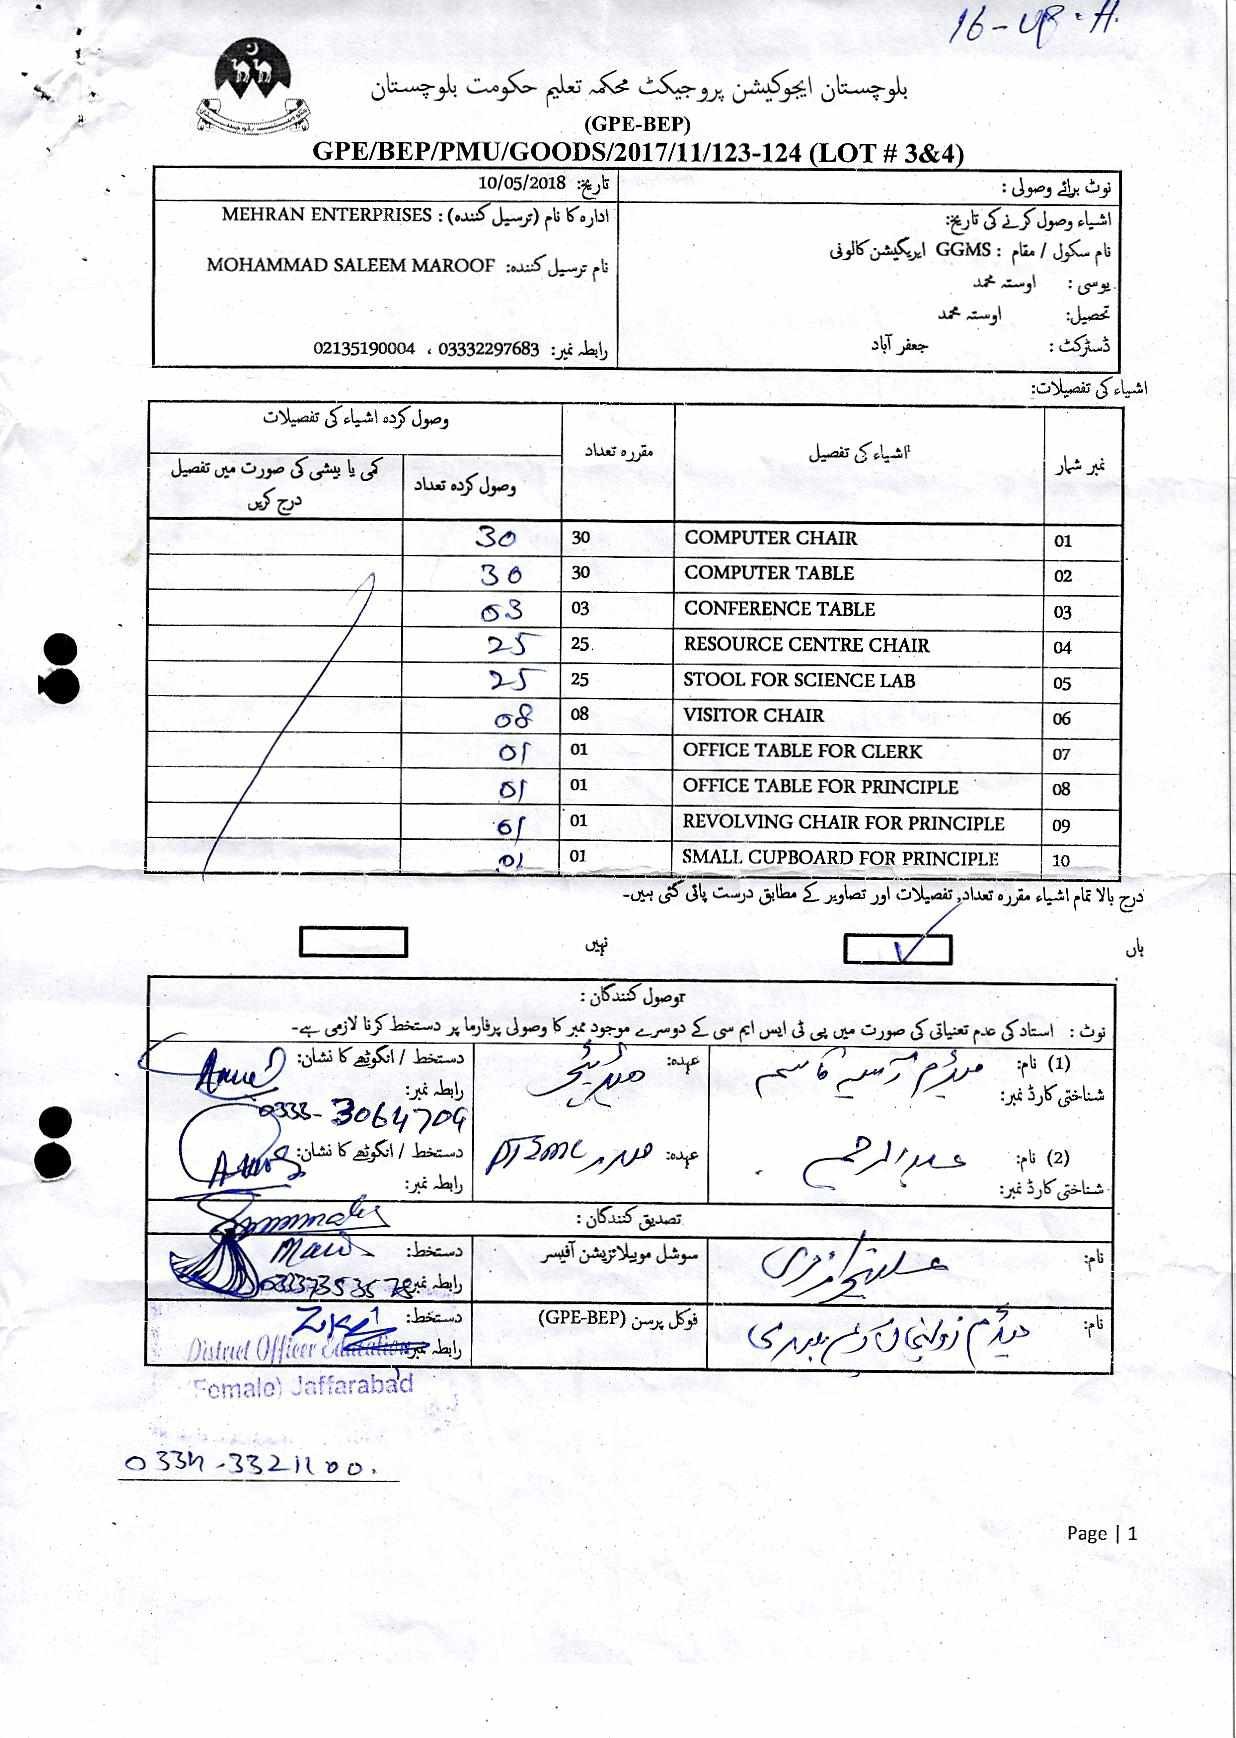 16-UP-H.
بلوچستان ایجوکیشن پروجیکٹ محکمہ تعلیم حکومت بلوچستان
(GPE-BEP)
GPE/BEP/PMU/GOODS/2017/11/123-124 (LOT # 3&4)
نوٹ برائے وصولی :
تاریخ: 10/05/2018
اشیاء وصول کرنے کی تاریخ:
ادارہ کا نام (ترسیل کنندہ) : MEHRAN ENTERPRISES
نام سکول / مقام : GGMS ایریگیشن کالونی
نام ترسیل کنندہ: MOHAMMAD SALEEM MAROOF
یوسی : اوستہ محمد
تحصیل: اوستہ محمد
ڈسٹرکٹ : جعفر آباد
رابطہ نمبر: 03332297683 ، 02135190004
اشیاء کی تفصیلات:
نمبر شمار اشیاء کی تفصیل مقررہ تعداد وصول کردہ اشیاء کی تفصیلات
وصول کردہ تعداد کمی یا بیشی کی صورت میں تفصیل درج کریں
01 COMPUTER CHAIR 30 30
02 COMPUTER TABLE 30 30
03 CONFERENCE TABLE 03 03
04 RESOURCE CENTRE CHAIR 25 25
05 STOOL FOR SCIENCE LAB 25 25
06 VISITOR CHAIR 08 08
07 OFFICE TABLE FOR CLERK 01 01
08 OFFICE TABLE FOR PRINCIPLE 01 01
09 REVOLVING CHAIR FOR PRINCIPLE 01 01
10 SMALL CUPBOARD FOR PRINCIPLE 01 01
درج بالا تمام اشیاء مقررہ تعداد, تفصیلات اور تصاویر کے مطابق درست پائی گئی ہیں۔
ہاں نہیں
وصول کنندگان :
نوٹ : استاد کی عدم تعیناتی کی صورت میں پی ٹی ایس ایم سی کے دوسرے موجود ممبر کا وصولی پرفارما پر دستخط کرنا لازمی ہے۔
(1) نام: میڈم آسیہ قاسم عہدہ: دستخط / انگوٹھے کا نشان:
شناختی کارڈ نمبر: رابطہ نمبر:
0333-3064709
(2) نام: عبدالرحیم عہدہ: صدر PTSMC دستخط / انگوٹھے کا نشان:
شناختی کارڈ نمبر: رابطہ نمبر:
تصدیق کنندگان :
نام: سوشل موبیلائزیشن آفیسر دستخط:
رابطہ نمبر: 03337353578
نام: فوکل پرسن (GPE-BEP) دستخط:
رابطہ نمبر:
District Officer Education
(Female) Jaffarabad
0334-3321100.
Page | 1